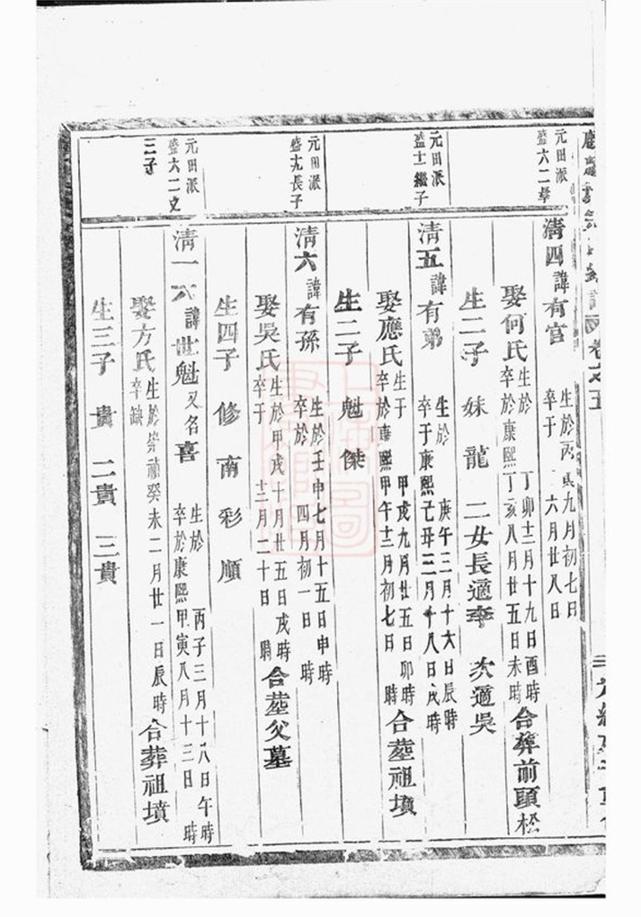 卷之五
元田派
盛六二孳
清四諱有官
生於丙寅九月初七日
卒于六月廿八日
娶何氏
生於丁卯十二月十九日酉時
卒於康熙丁亥八月廿五日未時
合葬前頭松
生二子 妹 龍 二女長適李 次適吳
元田派
盛士繼子
清五諱有弟
生於庚午三月十六日辰時
卒于康熙己丑三月十八日戌時
娶應氏
生于甲戌九月廿五日卯時
卒於康熙甲午十二月初七日時
合塟祖墳
生二子 魁 傑
元田派
盛九長子
清六諱有孫
生於壬申七月十五日申時
卒於四月初一日時
娶吳氏
生於甲戌十月廿五日戌時
卒于十二月二十日時
合塟父墓
生四子 修 南 彩 順
元田派
盛六二丈
三子
清一六諱世魁又名喜
生於丙子三月十八日午時
卒於康熙甲寅八月十三日時
娶方氏
生於崇禎癸未二月廿一日辰時
卒缺
合葬祖墳
生三子 貴 二貴 三貴